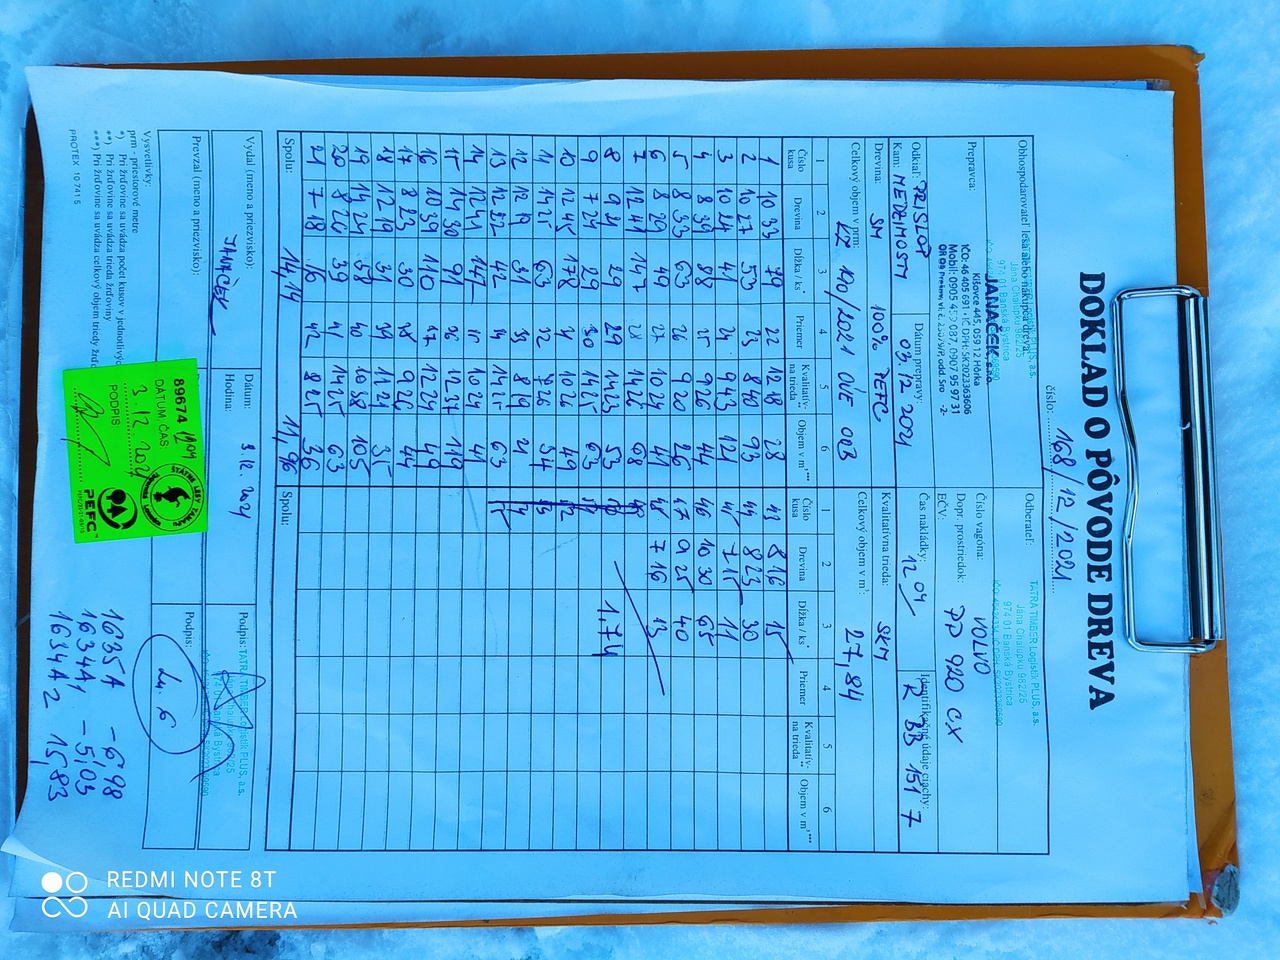 DOKLAD O PÔVODE DREVA
číslo: 168/12/2021
Obhospodarovateľ lesa alebo nákupca dreva:
JANAČEK s.r.o.
Kišovce 445, 059 12 Hôrka
974 01 Banská Bystrica
Odberateľ:
TATRA TIMBER Logistik PLUS, a.s.
Jána Chalupku 982/25
974 01 Banská Bystrica
Prepravca:
Číslo vagóna: VOLVO
Dopr. prostriedok:
EČV: PP 920 CX
Odkiaľ: PRISLOP
Kam: MEDZIMOSTÍ
Dátum prepravy:
03.12.2021
Čas nakládky:
12 04
Identifikačné údaje ciachy:
K BB 151 7
Drevina: SM 100% PEFC
Kvalitatívna trieda: SKM
Celkový objem v prm:
Celkový objem v m³: 27,84
Číslo kusa Drevina Dĺžka / ks* Priemer Kvalitatív- na trieda** Objem v m³***
Číslo kusa Drevina Dĺžka / ks* Priemer Kvalitatív- na trieda** Objem v m³***
1 2 3 4 5 6 1 2 3 4 5 6
1 10 33 79 22 12 18 28 43 8 16 15
2 10 27 53 23 8 40 93 44 8 23 30
3 10 24 41 24 9 43 121 45 7 15 11
4 8 39 88 25 9 26 44 46 10 30 65
5 8 33 63 26 9 20 26 47 9 25 40
6 8 29 49 27 10 24 41 48 7 16 13
7 12 41 147 28 14 26 68
8 9 21 29 29 14 23 53 1.74
9 7 24 29 30 14 25 63
10 12 45 178 31 10 26 49
11 14 25 63 32 7 26 34
12 12 19 31 33 8 19 21
13 12 22 42 34 14 25 63
14 12 41 147 35 10 24 41
15 14 30 91 36 12 37 119
16 10 39 110 37 12 24 49
17 8 23 30 38 9 26 44
18 12 19 31 39 11 21 35
19 14 24 58 40 10 38 105
20 8 26 39 41 14 25 63
21 7 18 16 42 8 25 36
Spolu: 14,14 11,96 Spolu:
Vydal (meno a priezvisko):
JANAČEK
Dátum: 3.12.2021
Hodina:
Podpis:
TATRA TIMBER Logistik PLUS, a.s.
974 01 Banská Bystrica
Prevzal (meno a priezvisko):
Podpis:
Lu. 6
Vysvetlivky:
prm - priestorové metre
*) Pri žrďovine sa uvádza počet kusov v jednotlivých
**) Pri žrďovine sa uvádza trieda žrďoviny
***) Pri žrďovine sa uvádza celkový objem triedy žrďo
PROTEX 107415
89674
DÁTUM ČAS:
3.12.2021
PODPIS
ŠTÁTNE LESY TANAPU
PEFC
1635A - 6,98
1634A1 - 5,03
1634A2 15,83
REDMI NOTE 8T
AI QUAD CAMERA